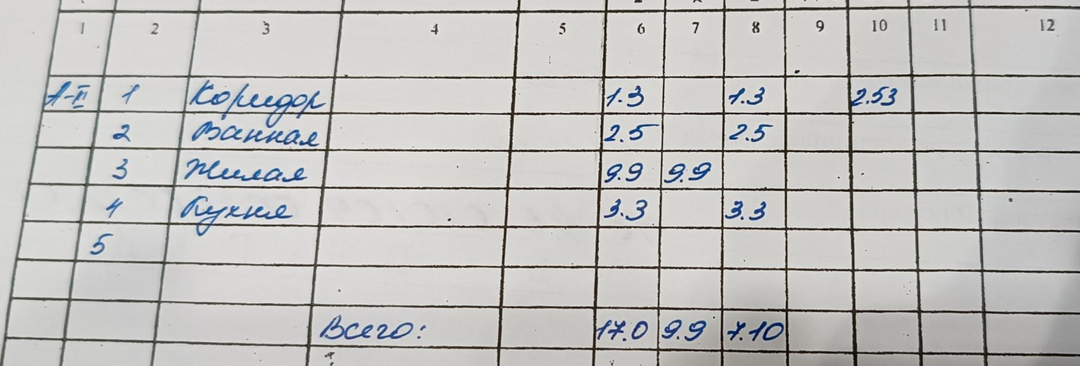 1 2 3 4 5 6 7 8 9 10 11 12
А-II 1 Коридор 1.3 1.3 2.53
2 Ванная 2.5 2.5
3 Жилая 9.9 9.9
4 Кухня 3.3 3.3
5
Всего: 17.0 9.9 7.10